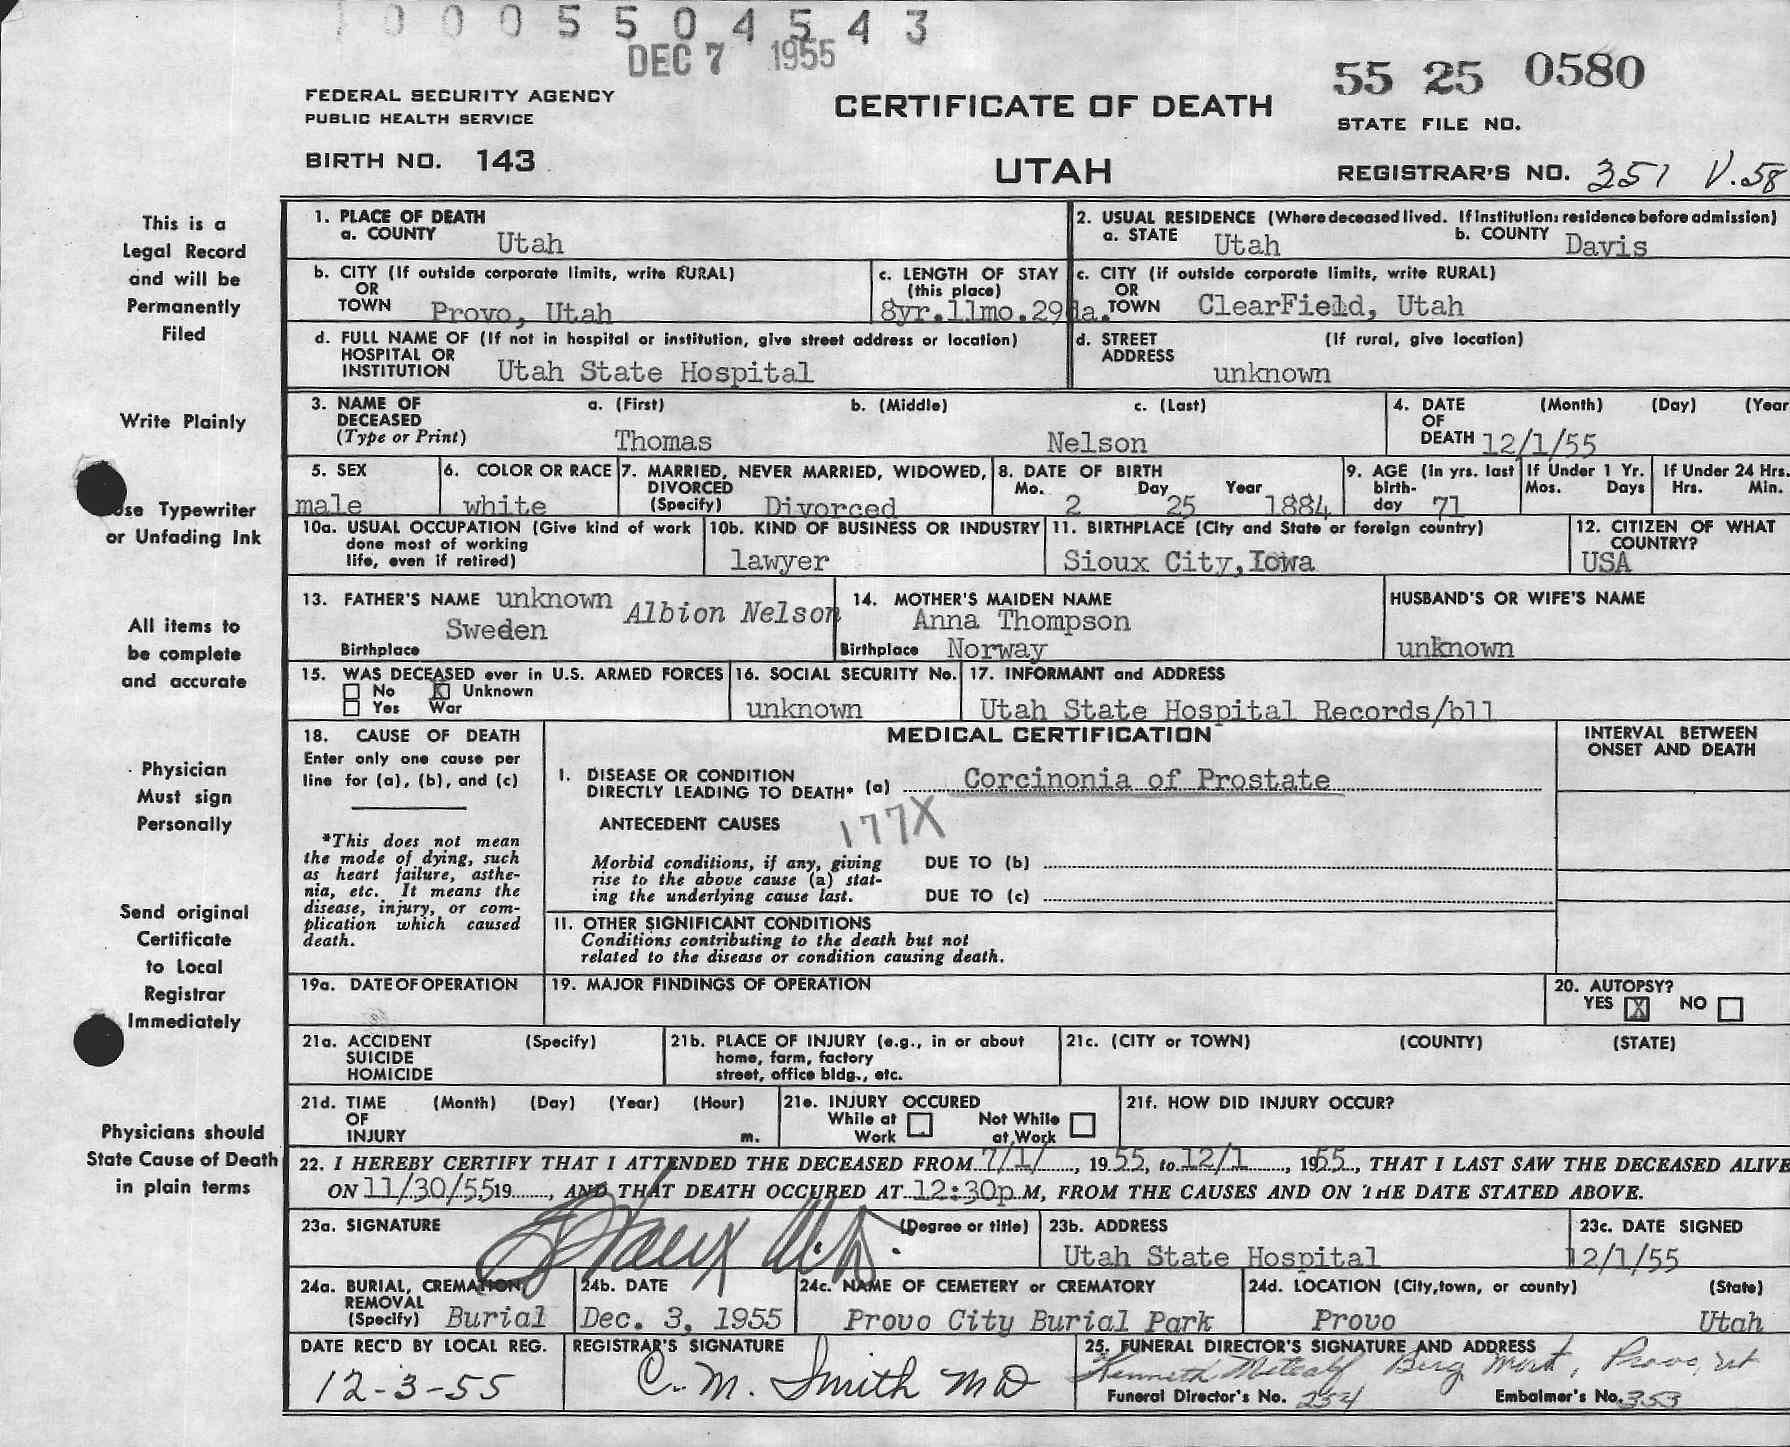 1 0 0 0 5 5 0 4 5 4 3
DEC 7 1955
55 25 0580
FEDERAL SECURITY AGENCY
PUBLIC HEALTH SERVICE
CERTIFICATE OF DEATH
STATE FILE NO.
BIRTH NO. 143
UTAH
REGISTRAR'S NO. 351 V.58
This is a
Legal Record
and will be
Permanently
Filed
Write Plainly
Use Typewriter
or Unfading Ink
All items to
be complete
and accurate
Physician
Must sign
Personally
Send original
Certificate
to Local
Registrar
Immediately
Physicians should
State Cause of Death
in plain terms
1. PLACE OF DEATH
a. COUNTY Utah
2. USUAL RESIDENCE (Where deceased lived. If Institution: residence before admission)
a. STATE Utah b. COUNTY Davis
b. CITY (If outside corporate limits, write RURAL)
OR
TOWN Provo, Utah
c. LENGTH OF STAY
(this place)
8yr.11mo.29da.
c. CITY (if outside corporate limits, write RURAL)
OR
TOWN ClearField, Utah
d. FULL NAME OF (If not in hospital or institution, give street address or location)
HOSPITAL OR
INSTITUTION Utah State Hospital
d. STREET (If rural, give location)
ADDRESS
unknown
3. NAME OF a. (First) b. (Middle) c. (Last)
DECEASED
(Type or Print) Thomas Nelson
4. DATE (Month) (Day) (Year
OF
DEATH 12/1/55
5. SEX
male
6. COLOR OR RACE
white
7. MARRIED, NEVER MARRIED, WIDOWED,
DIVORCED
(Specify) Divorced
8. DATE OF BIRTH
Mo. Day Year
2 25 1884
9. AGE (In yrs. last
birth-
day 71
If Under 1 Yr.
Mos. Days
If Under 24 Hrs.
Hrs. Min.
10a. USUAL OCCUPATION (Give kind of work
done most of working
life, even if retired)
10b. KIND OF BUSINESS OR INDUSTRY
lawyer
11. BIRTHPLACE (City and State or foreign country)
Sioux City, Iowa
12. CITIZEN OF WHAT
COUNTRY?
USA
13. FATHER'S NAME unknown Albion Nelson
Sweden
Birthplace
14. MOTHER'S MAIDEN NAME
Anna Thompson
Birthplace Norway
HUSBAND'S OR WIFE'S NAME
unknown
15. WAS DECEASED ever in U.S. ARMED FORCES
No X Unknown
Yes War
16. SOCIAL SECURITY No.
unknown
17. INFORMANT and ADDRESS
Utah State Hospital Records/bll
18. CAUSE OF DEATH
Enter only one cause per
line for (a), (b), and (c)
*This does not mean
the mode of dying, such
as heart failure, asthe-
nia, etc. It means the
disease, injury, or com-
plication which caused
death.
MEDICAL CERTIFICATION
INTERVAL BETWEEN
ONSET AND DEATH
I. DISEASE OR CONDITION
DIRECTLY LEADING TO DEATH* (a) Corcinonia of Prostate
ANTECEDENT CAUSES 177X
Morbid conditions, if any, giving
rise to the above cause (a) stat-
ing the underlying cause last.
DUE TO (b)
DUE TO (c)
II. OTHER SIGNIFICANT CONDITIONS
Conditions contributing to the death but not
related to the disease or condition causing death.
19a. DATE OF OPERATION
19. MAJOR FINDINGS OF OPERATION
20. AUTOPSY?
YES X NO
21a. ACCIDENT (Specify)
SUICIDE
HOMICIDE
21b. PLACE OF INJURY (e.g., in or about
home, farm, factory
street, office bldg., etc.
21c. (CITY or TOWN) (COUNTY) (STATE)
21d. TIME (Month) (Day) (Year) (Hour)
OF
INJURY m.
21e. INJURY OCCURED
While at Not While
Work at Work
21f. HOW DID INJURY OCCUR?
22. I HEREBY CERTIFY THAT I ATTENDED THE DECEASED FROM 7/1/, 1955, to 12/1, 1955, THAT I LAST SAW THE DECEASED ALIVE
ON 11/30/55 19......, AND THAT DEATH OCCURED AT 12:30p M, FROM THE CAUSES AND ON THE DATE STATED ABOVE.
23a. SIGNATURE (Degree or title)
23b. ADDRESS
Utah State Hospital
23c. DATE SIGNED
12/1/55
24a. BURIAL, CREMATION,
REMOVAL
(Specify) Burial
24b. DATE
Dec. 3, 1955
24c. NAME OF CEMETERY or CREMATORY
Provo City Burial Park
24d. LOCATION (City,town, or county) (State)
Provo Utah
DATE REC'D BY LOCAL REG.
12-3-55
REGISTRAR'S SIGNATURE
C. M. Smith MD
25. FUNERAL DIRECTOR'S SIGNATURE AND ADDRESS
Kenneth Metcalf Berg Mort, Provo, Ut
Funeral Director's No. 254 Embalmer's No. 353